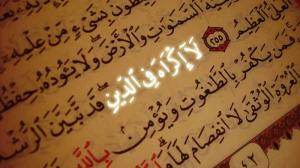 يحيطون بشيء من علمه
السموت والأرض ولا يئوده حفظهما
العلي العظيم ٢٥٥ لا إكراه في الدين قد تبين الرشد
فمن يكفر بالطغوت ويؤمن بالله
العروة الوثقى لا انفصام لها